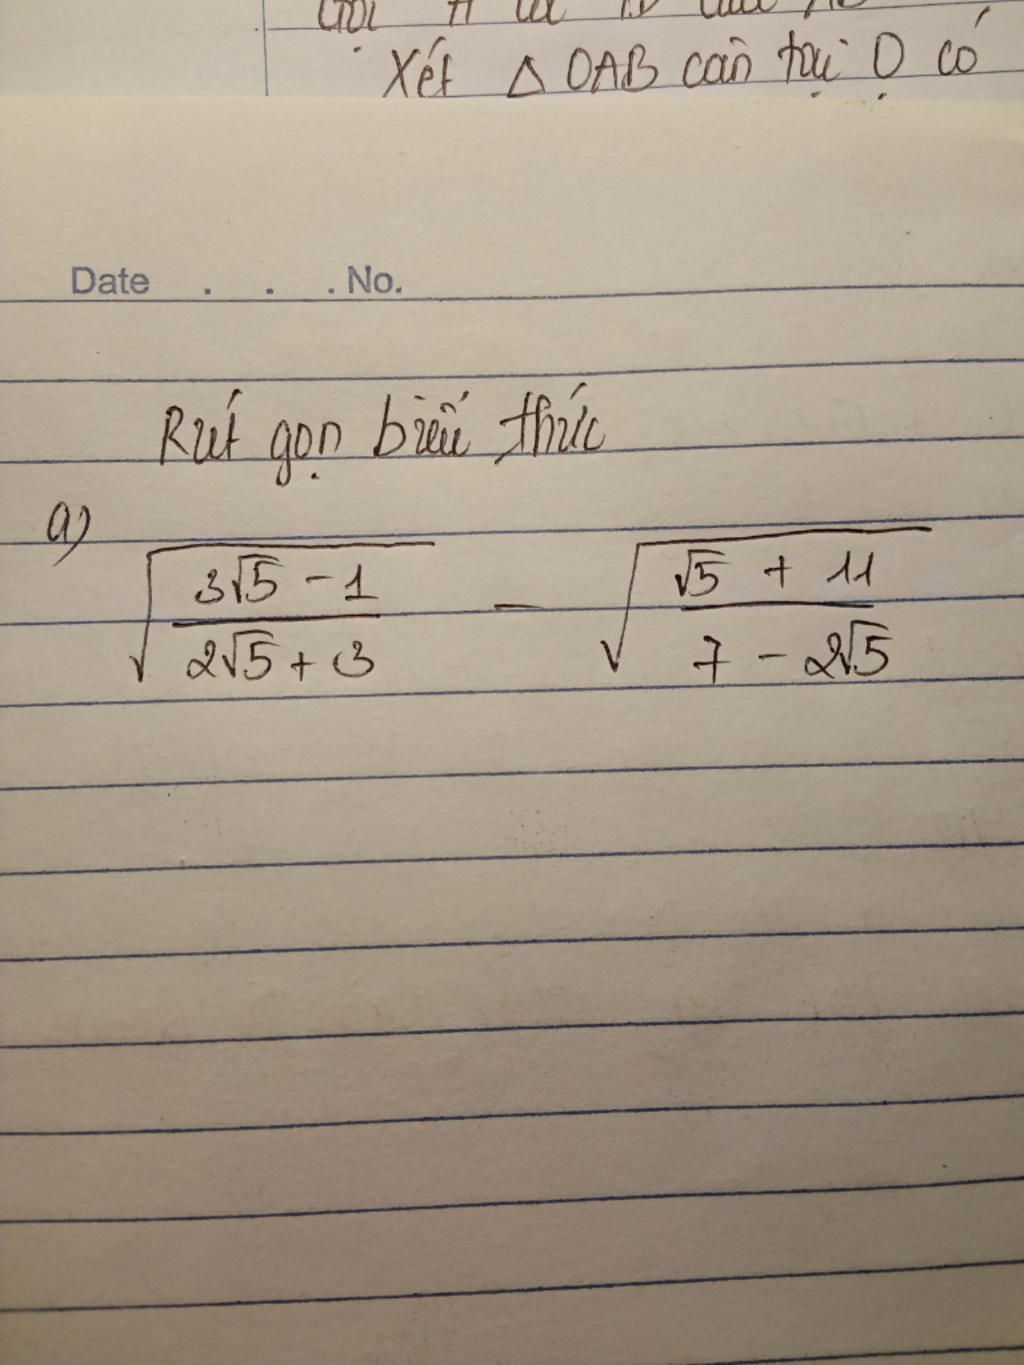 Xét △ OAB cân tại O có
Date . . . No.
Rút gọn biểu thức
a)
√((3√5 - 1)/(2√5 + 3)) - √((√5 + 11)/(7 - 2√5))